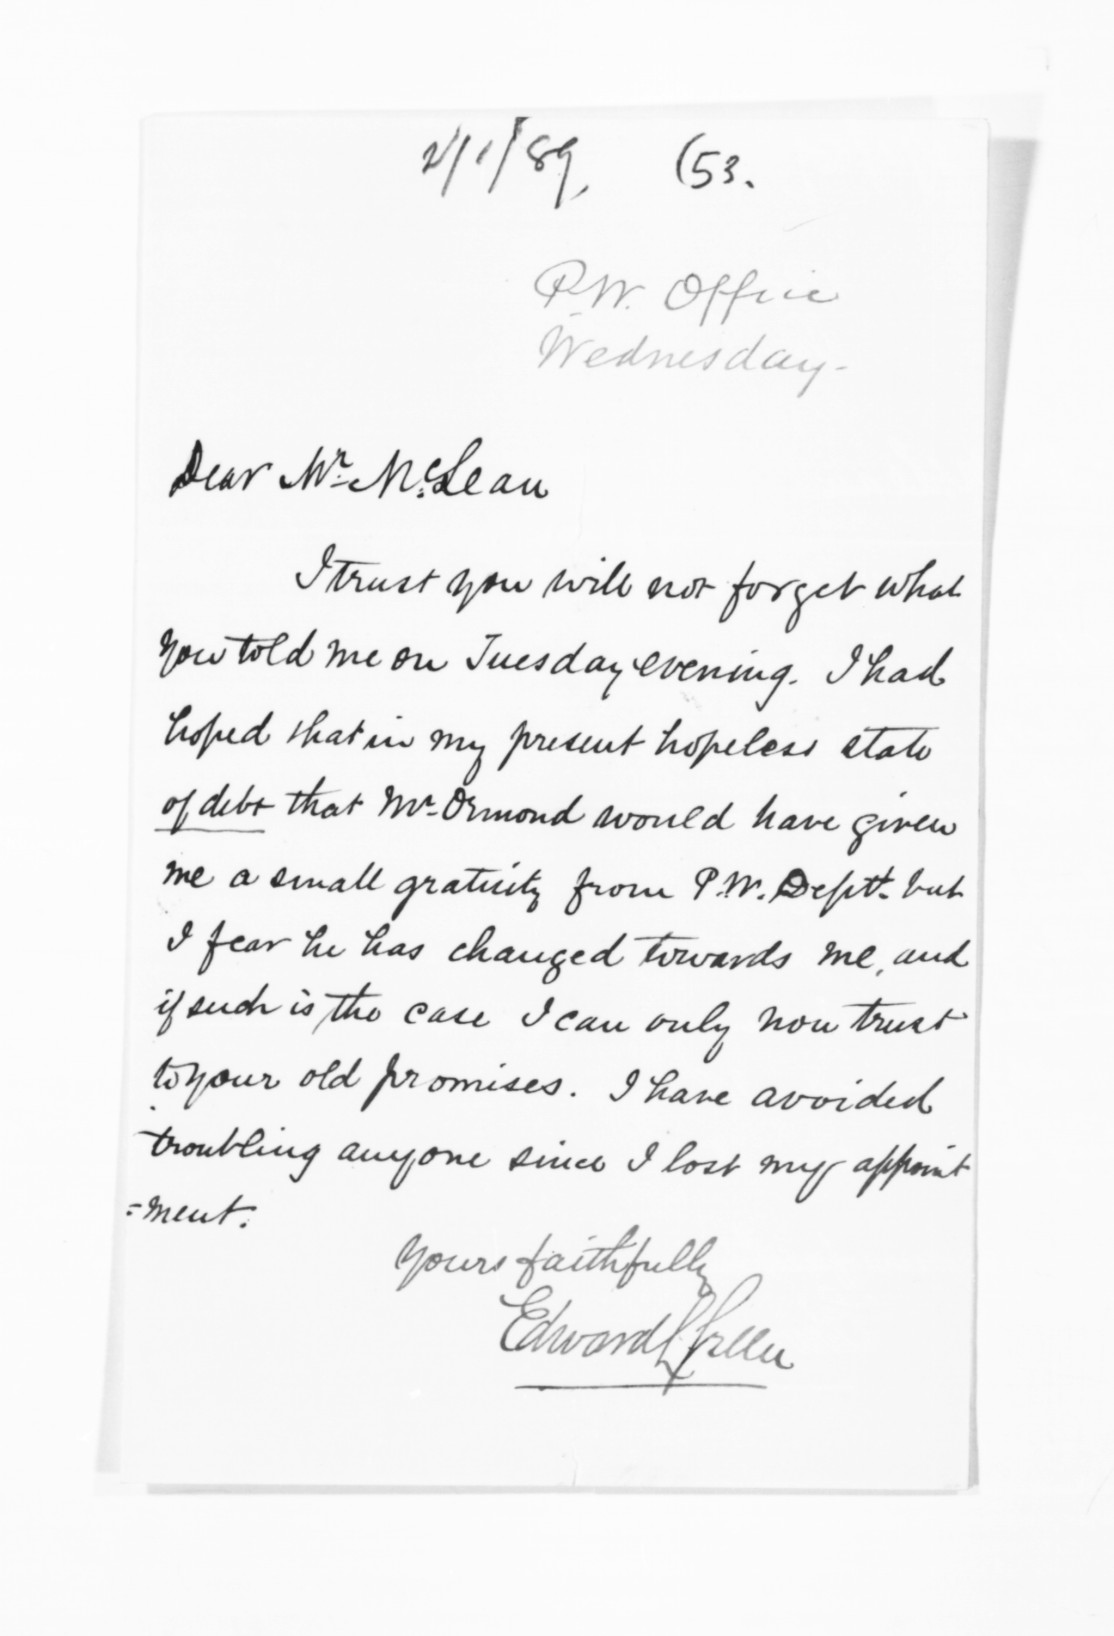 2/1/89, (53.
P.W. Office
Wednesday-
Dear Mr. McLean
I trust you will not forget what
you told me on Tuesday evening. I had
hoped that in my present hopeless state
of debt that Mr Ormond would have given
me a small gratuity from P.W. Deptt. but
I fear he has changed towards me, and
if such is the case I can only now trust
to your old promises. I have avoided
troubling anyone since I lost my appoint
=ment.
Yours faithfully
Edward